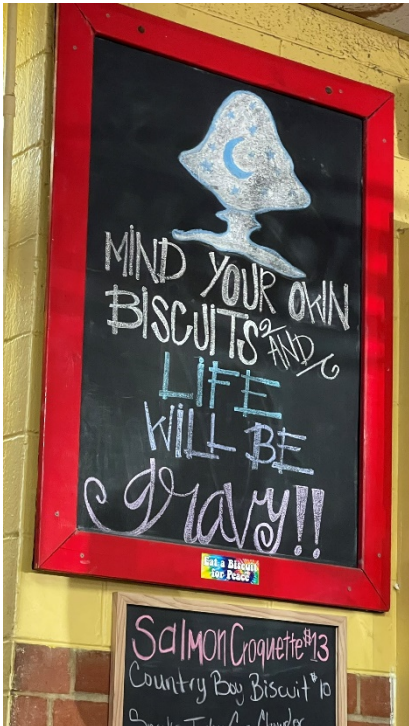 MIND YOUR OWN
BISCUITS AND
LIFE
WILL BE
gravy!!
Eat a Biscuit
for Peace
Salmon Croquette $13
Country Boy Biscuit $10